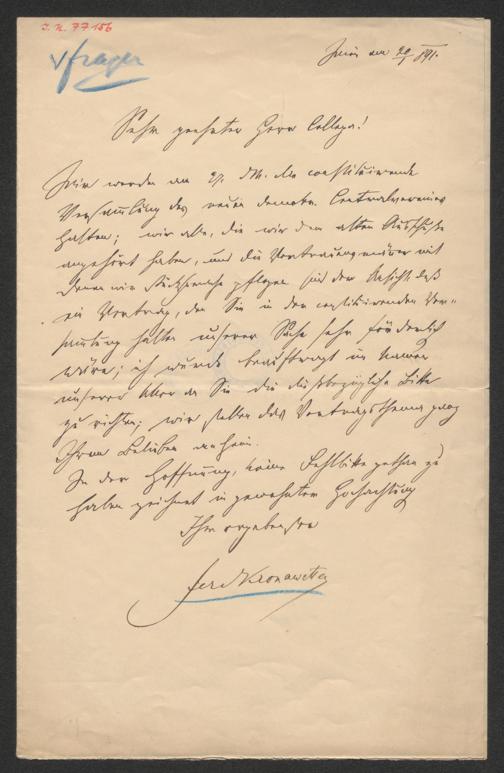 I. N. 77156
Wien am 29/ 891.
Sehr geehrter Herr Collega!
Wir werden am 2/. d. M. die constituirende
Versammlung des neuen demokr. Centralvereines
halten; wir alle, die wir dem alten Ausschusse
angehört haben, und die Vertrauensmänner mit
denen wir Rücksprache pflogen sind der Ansicht, daß
ein Vortrag, den Sie in der constituirenden Ver-
sammlung halten unserer Sache sehr förderlich
wäre; ich wurde beauftragt im Namen
unserer Aller an Sie die diesbezügliche Bitte
zu richten; wir stellen das Vortragsthema ganz
Ihrem Belieben anheim.
In der Hoffnung, keine Fehlbitte gethan zu
haben zeichnet in gewohnter Hochachtung
Ihr ergebenster
Ferd Kronawetter